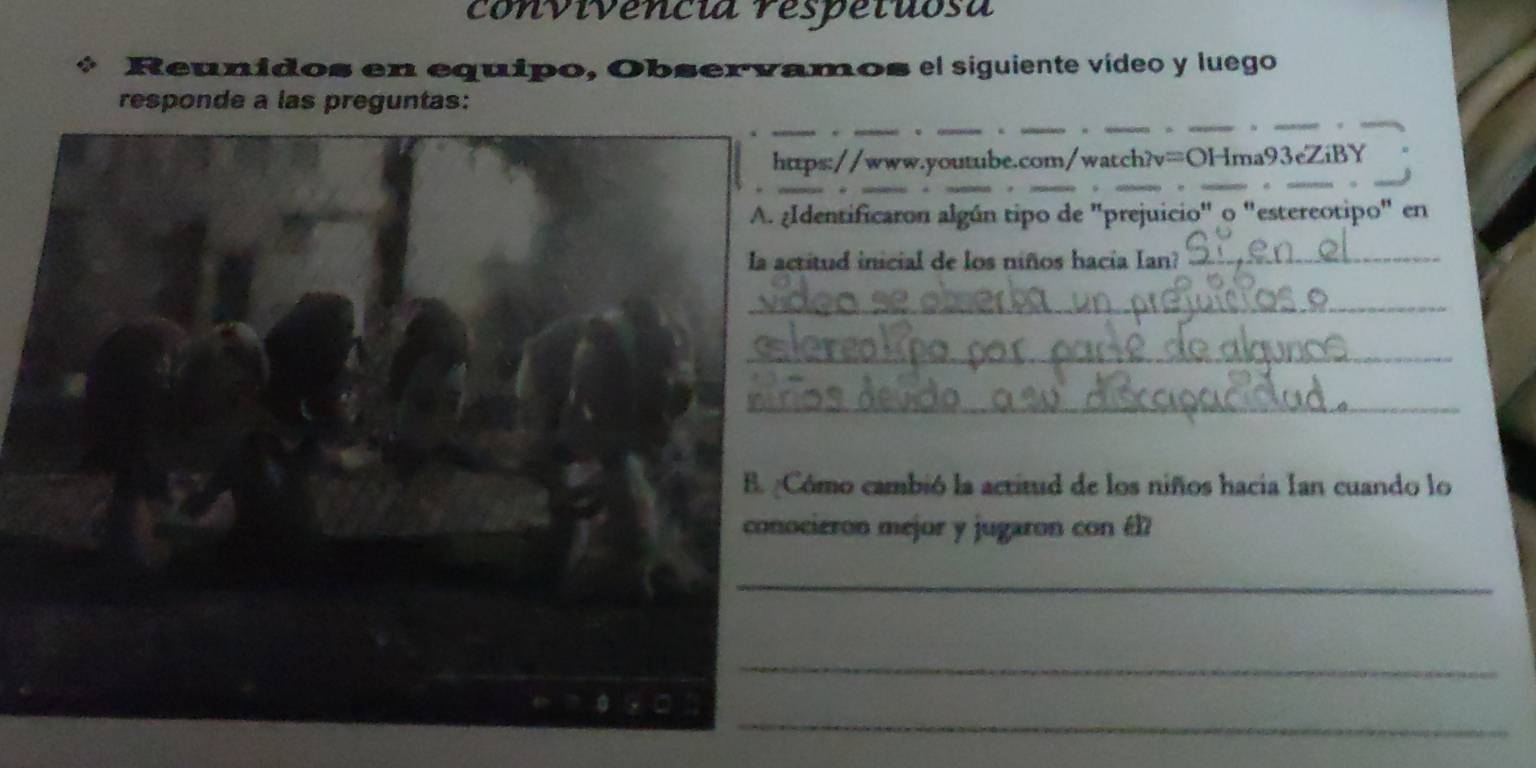 convivencia respetuosa
❖ Reunidos en equipo, Observamos el siguiente vídeo y luego
responde a las preguntas:
https://www.youtube.com/watch?v=OHma93eZiBY
A. ¿Identificaron algún tipo de "prejuicio" o "estereotipo" en
la actitud inicial de los niños hacia Ian? Si, en el
video se obserba un prejuicios o
estereotipo por parte de algunos
niños devido a su discapacidad.
B. ¿Cómo cambió la actitud de los niños hacia Ian cuando lo
conocieron mejor y jugaron con él?